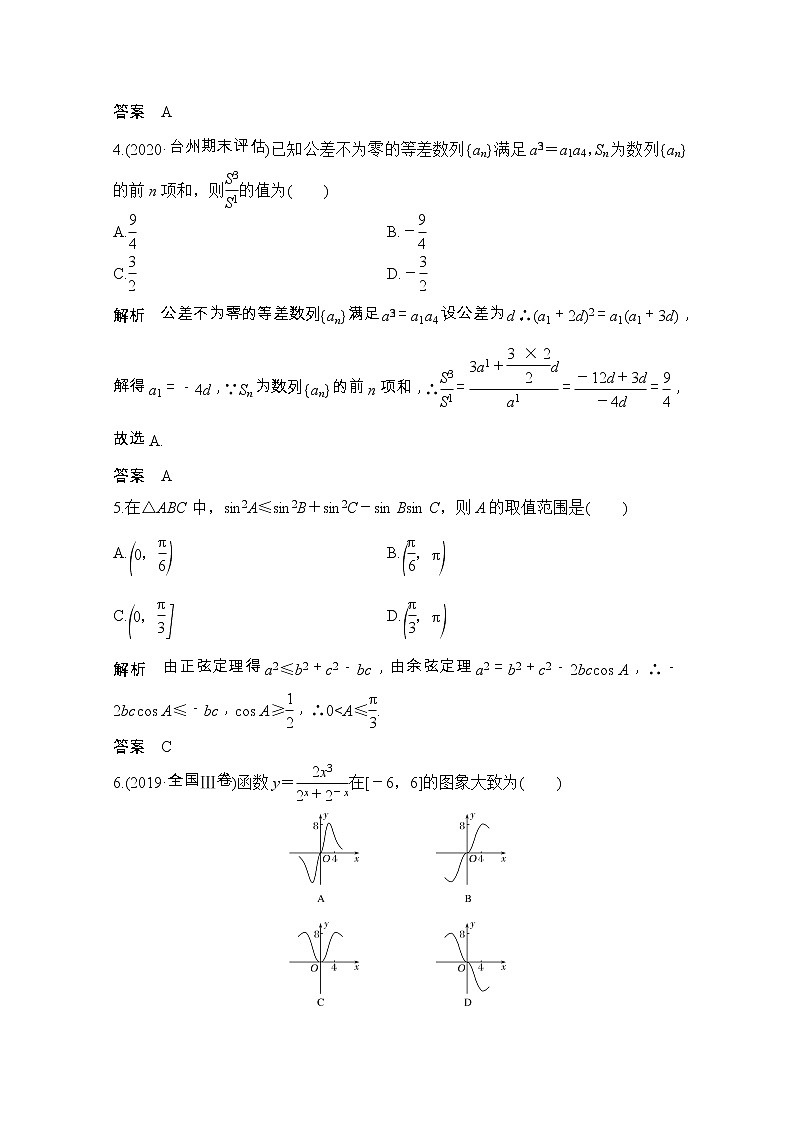 答案 A
4.(2020·台州期末评估)已知公差不为零的等差数列{aₙ}满足a²₃=a₁a₄,Sₙ为数列{aₙ}
的前n项和，则S₃/S₁的值为( )
A.9/4 B.-9/4
C.3/2 D.-3/2
解析 公差不为零的等差数列{aₙ}满足a²₃=a₁a₄设公差为d∴(a₁+2d)²=a₁(a₁+3d)，
解得a₁=-4d，∵Sₙ为数列{aₙ}的前n项和，∴S₃/S₁=(3a₁+(3×2/2)d)/a₁=(-12d+3d)/(-4d)=9/4，
故选A.
答案 A
5.在△ABC中，sin²A≤sin²B+sin²C-sin Bsin C，则A的取值范围是( )
A.(0，π/6) B.(π/6，π)
C.(0，π/3] D.(π/3，π)
解析 由正弦定理得a²≤b²+c²-bc，由余弦定理a²=b²+c²-2bccos A，∴-
2bccos A≤-bc，cos A≥1/2，∴0<A≤π/3.
答案 C
6.(2019·全国Ⅲ卷)函数y=2x³/(2ˣ+2⁻ˣ)在[-6，6]的图象大致为( )
y 8 O 4 x y 8 O 4 x
A B
y 8 O 4 x y 8 O 4 x
C D